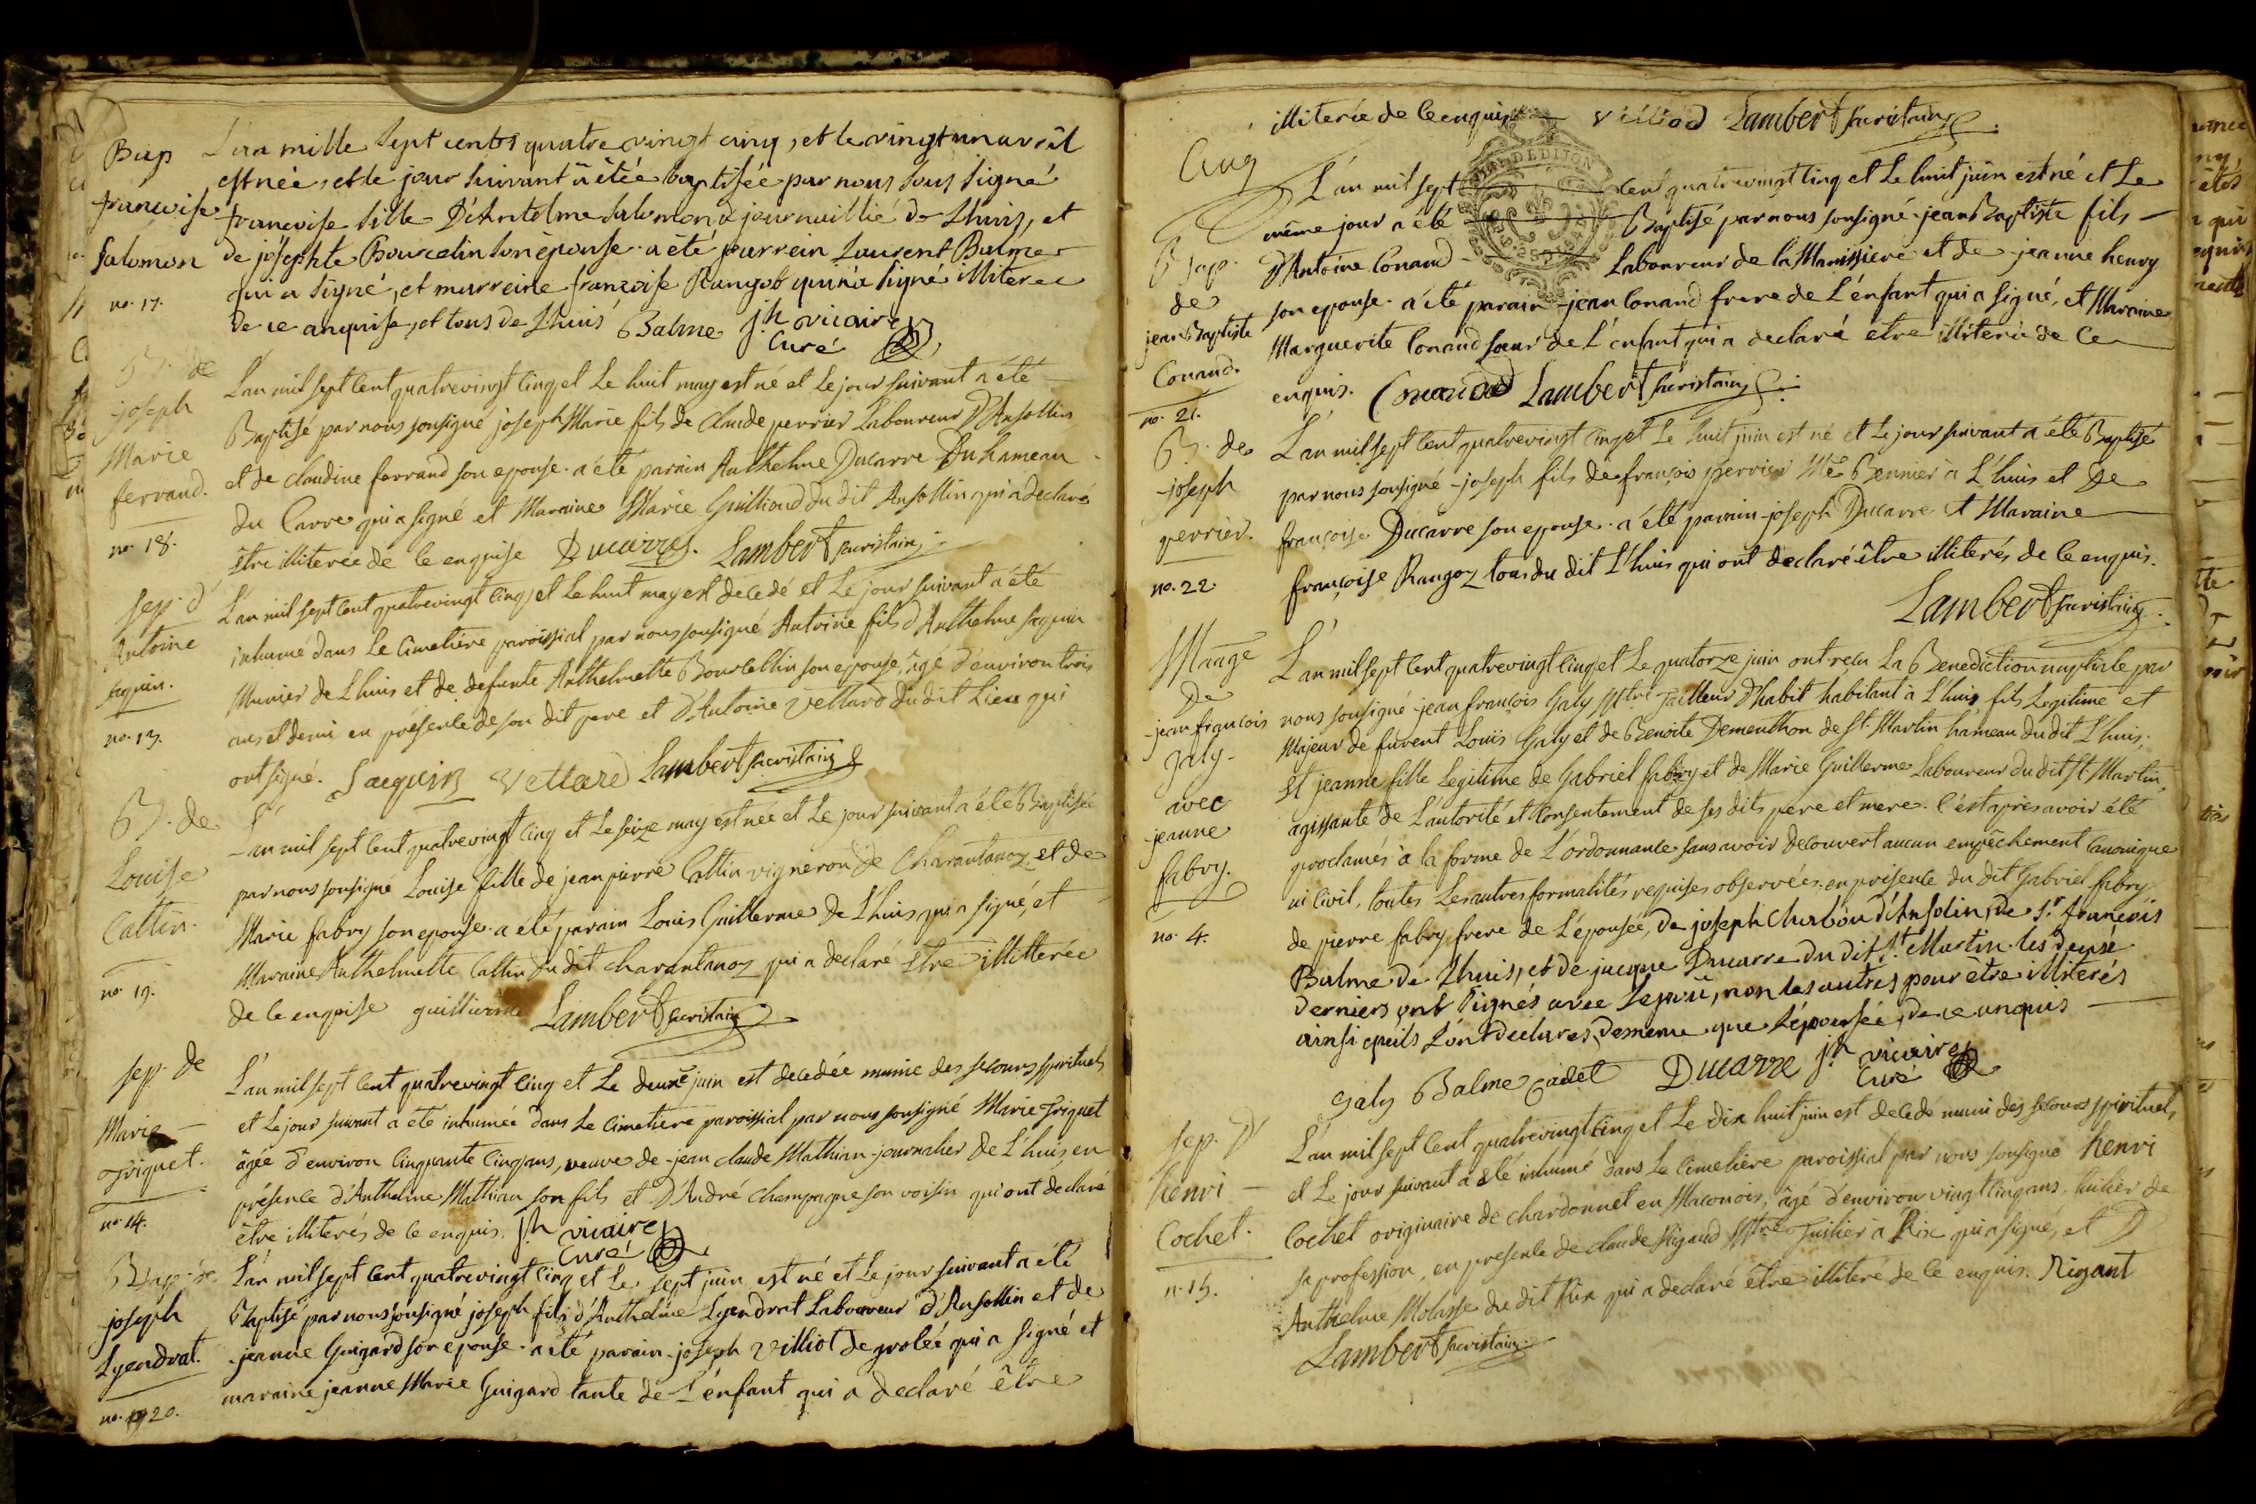 Bap
françoise
Salomon
no. 17.
L'an mille sept cents quatre vingt cinq, et le vingt un avril
est née, et le jour suivant a étée baptisée par nous sous signé
françoise fille D'Antelme Salomon journaillié de Lhuis, et
de josephte Bourcelin son épouse. a été parrein Laurent Balme
qui a signé, et marreine françoise Rangoz qui n'a signé illiterée
de ce anquise, et tous de Lhuis Balme jh vicaire
Curé
B. de
joseph
Marie
ferrand.
no. 18.
L'an mil sept Cent quatrevingt Cinq et Le huit may est né et Le jour suivant a été
Baptisé par nous sousigné joseph Marie fils de Claude perrier Laboureur D'Ansollin
et de Claudine ferrand son epouse. a été parain Anthelme Ducarre Du hameau
du Carre qui a signé et Maraine Marie Guilliond du dit Ansollin qui a declaré
Etre illiterée de Ce enquise Ducarre. Lambert sacristain
sep. d'
Antoine
saquin.
no. 13.
L'an mil sept Cent quatrevingt Cinq et Le huit may est decedé et Le jour suivant a été
inhumé dans Le Cimetière paroissial par nous sousigné Antoine fils d'Anthelme saquin
Munier de Lhuis et de defunte Anthelmette Bourcellin son epouse, âgé d'environ trois
ans et demi en présence de son dit pere et D'Antoine Vettard du dit Lieu qui
ont signé. Saequin Vettard Lambert sacristain
B. de
Louise
Cattin.
no. 19.
L'an mil sept Cent quatrevingt Cinq et Le seize may est née et Le jour suivant a été Baptisée
par nous sousigné Louise fille de jean pierre Cattin vigneron de Charantanoz et de
Marie fabry son epouse. a été parain Louis Guillerme de Lhuis qui a signé, et
Maraine Anthelmette Cattin du dit charantanoz qui a declaré Etre illitterée
de Ce enquise guillierme Lambert sacristain
sep. de
Marie
Triquet.
no. 14.
L'an mil sept Cent quatrevingt Cinq et Le deuxe juin est decedée munie des secours spirituels
et Le jour suivant a été inhumée dans Le Cimetiere paroissial par nous sousigné Marie Triquet
âgée d'environ Cinquante Cinq ans, veuve de jean claude Mathian journalier de L'huis, en
présence d'Anthelme Mathian son fils et D'André Champagne son voisin qui ont declaré
être illiterés de Ce enquis. jh vicaire
Curé
Bap. de
joseph
Lyendrat.
no. 20.
L'an mil sept Cent quatrevingt Cinq et Le sept juin est né et Le jour suivant a été
Baptisé par nous sousigné joseph fils d'Anthelme Lyendrat Laboureur d'Ansollin et de
jeanne Guigard son epouse. a été parain joseph Villiot de grolée qui a signé et
maraine jeanne Marie Guigard tante de L'enfant qui a declaré être
illiterée de Ce enquise Villiod Lambert sacristain
Cinq
Bap.
de
jean Baptiste
Conand.
no. 21.
L'an mil sept Cent quatrevingt Cinq et Le huit juin est né et Le
même jour a été Baptisé par nous sousigné jean Baptiste fils
D'Antoine Conand Laboureur de la Manissiere et de jeanne henry
son epouse. a été parain jean Conand frere de L'enfant qui a signé, et Maraine
Marguerite Conand sœur de L'enfant qui a declaré etre illiterée de Ce
enquis. Conand Lambert sacristain
B. de
joseph
perrier.
no. 22
L'an mil sept Cent quatrevingt Cinq et Le huit juin est né et Le jour suivant a été Baptisé
par nous sousigné joseph fils de françois perrier à L'huis et De
françoise Ducarre son epouse. a été parain joseph Ducarre et Maraine
françoise Rangoz tous du dit L'huis qui ont declaré être illiterés de Ce enquis.
Lambert sacristain
Mariage
De
jean françois
Galy
avec
jeanne
fabry.
no. 4.
L'an mil sept Cent quatrevingt Cinq et Le quatorze juin ont recu La Benediction nuptiale par
nous sousigné jean françois Galy Mtre Tailleur D'habit habitant à L'huis, fils Legitime et
Majeur de furent Louis Galy et de Benoite Dementhon de St Martin hameau du dit L'huis,
Et jeanne fille Legitime de Gabriel fabry et de Marie Guillerme Laboureur du dit St Martin,
agissante de L'autorité et Consentement de ses dits pere et mere. C'est apres avoir été
proclamés à la forme de L'ordonnance sans avoir decouvert aucun empêchement Canonique
ni Civil, toutes Les autres formalités requises observées. en présence du dit Gabriel fabry
de pierre fabry frere de L'épousée, de joseph Charbon d'Ansolin, de Sr. françois
Balme de Lhuis, et de jacque Ducarre du dit St. Martin. les deux
derniers ont signés avec Lepoux, non les autres pour être illiterés
ainsi qu'ils L'ont declarés, de même que L'épousée, de ce anquis
Galy Balme Cadet Ducarre jh vicaire
Curé
sep. D'
henri
Cochet.
n. 15.
L'an mil sept Cent quatrevingt Cinq et Le dix huit juin est decedé muni des secours spirituels,
et Le jour suivant a été inhumé dans Le Cimetière paroissial par nous sousigné henri
Cochet originaire de chardonnet en Maconois, âgé d'environ vingt Cinq ans, tuilier de
sa profession, en presence de claude Rigaud Mtre Tuilier à Rix qui a signé, et D'
Anthelme Molasse du dit Rix qui a declaré être illiteré de Ce enquis. Rigant
Lambert sacristain